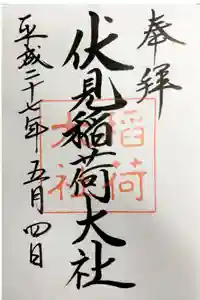 奉拝
伏見稲荷大社
平成二十七年五月四日
稲荷
大社